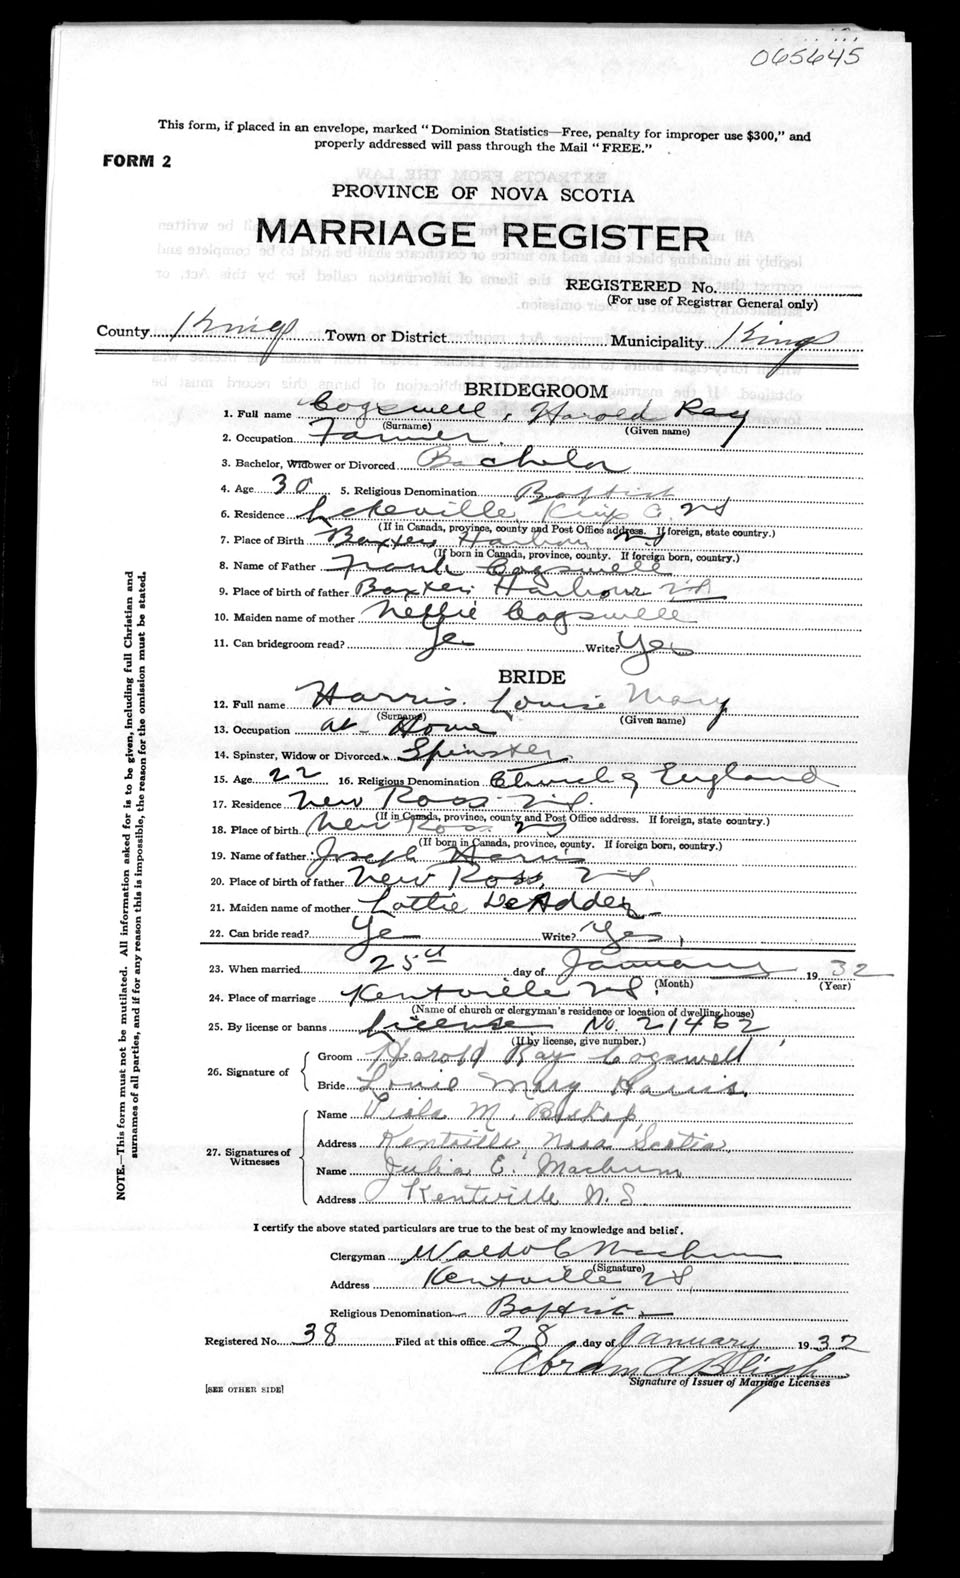 065645
This form, if placed in an envelope, marked "Dominion Statistics—Free, penalty for improper use $300," and
properly addressed will pass through the Mail "FREE."
FORM 2
PROVINCE OF NOVA SCOTIA
MARRIAGE REGISTER
REGISTERED No.
(For use of Registrar General only)
County Kings Town or District Municipality Kings
BRIDEGROOM
1. Full name Cogswell, Harold Ray
(Surname) (Given name)
2. Occupation Farmer.
3. Bachelor, Widower or Divorced Bachelor
4. Age 30 5. Religious Denomination Baptist
6. Residence Kings Co. NS
(If in Canada, province, county and Post Office address. If foreign, state country.)
7. Place of Birth Baxters Harbour NS
(If born in Canada, province, county. If foreign born, country.)
8. Name of Father Frank Cogswell
9. Place of birth of father Baxters Harbour NS
10. Maiden name of mother Nettie Cogswell
11. Can bridegroom read? Yes Write? Yes
BRIDE
12. Full name Harris. Louise Mary
(Surname) (Given name)
13. Occupation at Home
14. Spinster, Widow or Divorced Spinster
15. Age 22 16. Religious Denomination Church of England
17. Residence New Ross N.S.
(If in Canada, province, county and Post Office address. If foreign, state country.)
18. Place of birth New Ross NS
(If born in Canada, province, county. If foreign born, country.)
19. Name of father Joseph Harris
20. Place of birth of father New Ross, N.S.
21. Maiden name of mother Lottie DeAdder
22. Can bride read? Yes Write? Yes,
23. When married 25th day of January 1932
(Month) (Year)
24. Place of marriage Kentville N.S.
(Name of church or clergyman's residence or location of dwelling house)
25. By license or banns License No. 21462
(If by license, give number.)
26. Signature of
Groom Harold Ray Cogswell
Bride Louie Mary Harris.
27. Signatures of Witnesses
Name Viola M. Bishop
Address Kentville Nova Scotia,
Name Julia E. Machum
Address Kentville N.S.
I certify the above stated particulars are true to the best of my knowledge and belief.
Clergyman Waldo C Machum
(Signature)
Address Kentville NS
Religious Denomination Baptist
Registered No. 38 Filed at this office 28 day of January 1932
Abram A Bligh
Signature of Issuer of Marriage Licenses
[SEE OTHER SIDE]
NOTE.—This form must not be mutilated. All information asked for is to be given, including full Christian and
surnames of all parties, and if for any reason this is impossible, the reason for the omission must be stated.